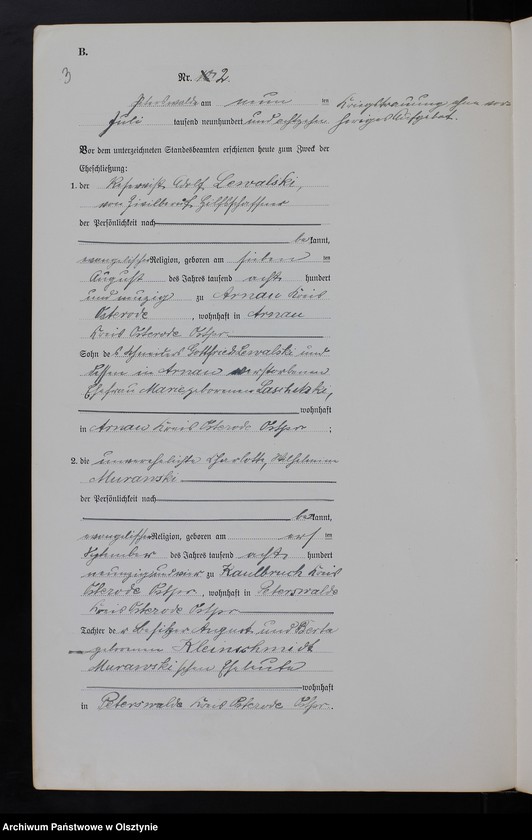 B.
3
Nr. 2.
Peterswalde am neun ten Kriegstrauung ohne vor-
Juli tausend neunhundert und achtzehn heriges Aufgebot.
Vor dem unterzeichneten Standesbeamten erschienen heute zum Zweck der
Eheschließung:
1. der Reservist Adolf Lewalski,
von Zivilberuf Hilfsschaffner
der Persönlichkeit nach
be kannt,
evangelischer Religion, geboren am sieben ten
August des Jahres tausend acht hundert
und neunzig zu Arnau Kreis
Osterode, wohnhaft in Arnau
Kreis Osterode Ostpr.
Sohn des Schneiders Gottfried Lewalski und
dessen in Arnau verstorbenen
Ehefrau Marie geborenen
wohnhaft
in Arnau Kreis Osterode Ostpr ;
2. die unverehelichte Charlotte, Wilhelmine
Murawski
der Persönlichkeit nach
be kannt,
evangelischer Religion, geboren am ten
September des Jahres tausend acht hundert
neunzig und vier zu Kaulbruch Kreis
Osterode Ostpr, wohnhaft in Peterswalde
Kreis Osterode Ostpr
Tochter der Besitzer August und Berta
geborenen Kleinschmidt
Murawski'schen Eheleute
wohnhaft
in Peterswalde Kreis Osterode Ostpr.
Archiwum Państwowe w Olsztynie